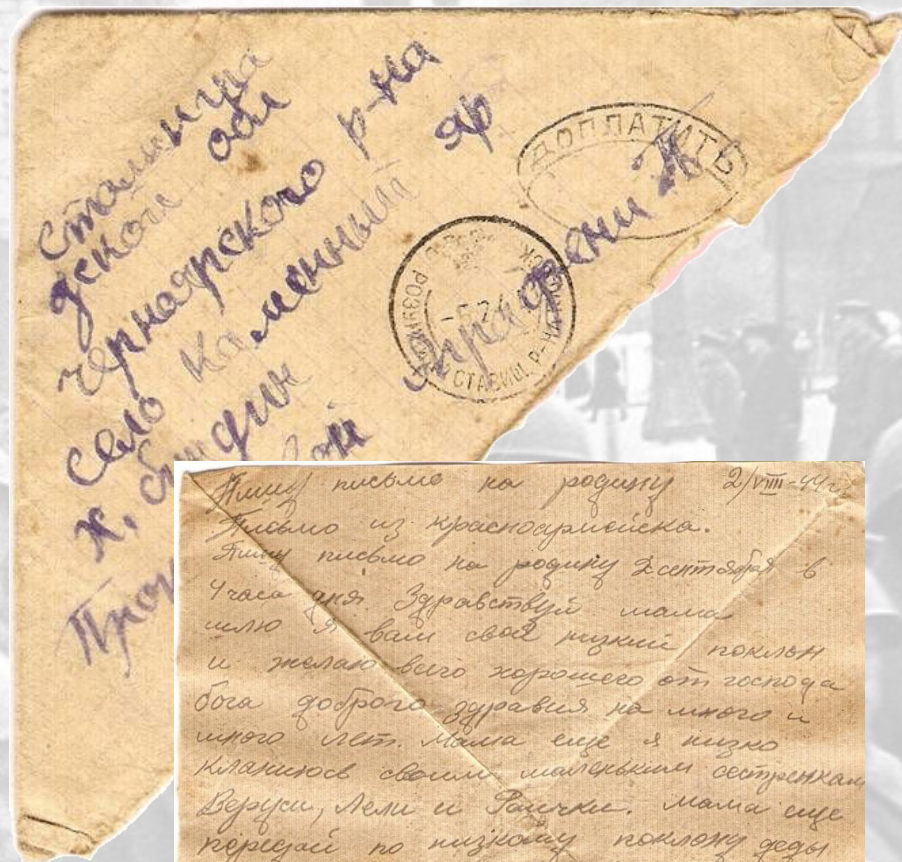 Сталингра
дской обл
Черноярского р-на
село Каменный яр
х.
Аграфени
ДОПЛАТИТЬ
СТАВИЩ. Р-НА
Пишу письмо на родину 2/VIII-44г
Письмо из красноармейска.
Пишу письмо на родину 2 сентября в
4 часа дня. Здравствуй мама
шлю я вам свой низкий поклон
и желаю всего хорошего от господа
бога доброго здравия на много и
много лет. Мама еще я низко
кланиюсь своим маленьким сестренкам
Веруси, Лели и Раички. Мама еще
передай по низкому поклону деды